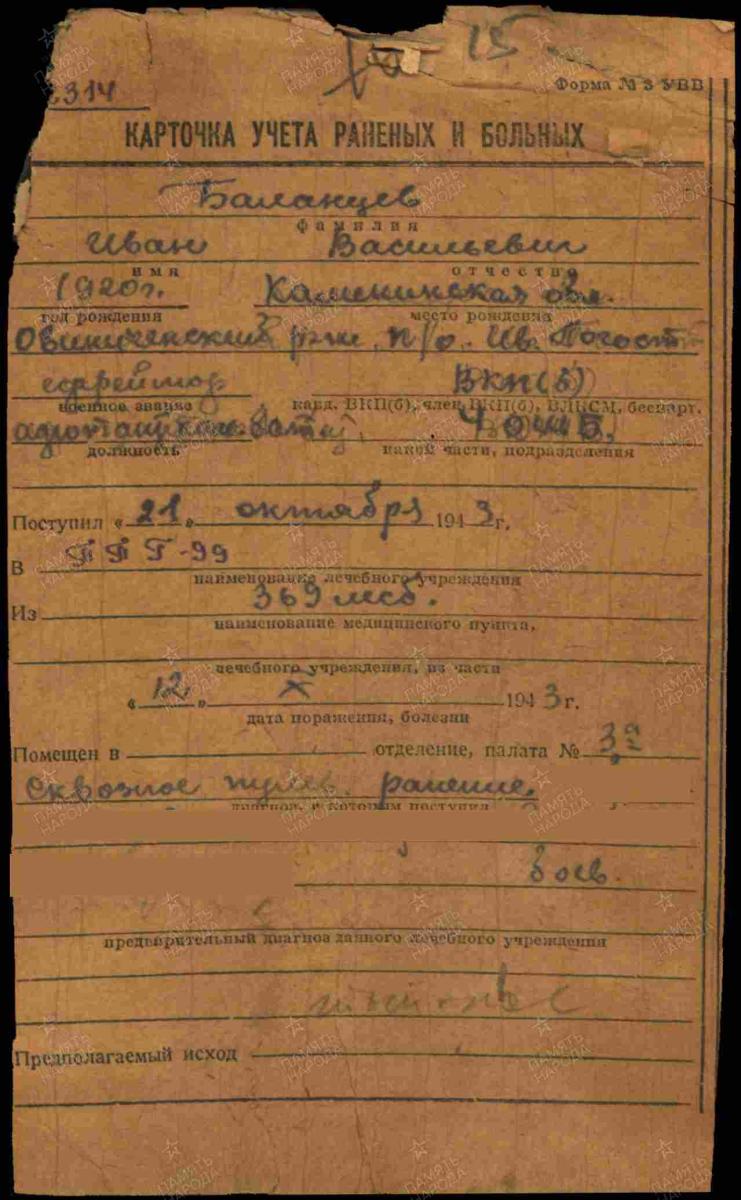 15
3314
Форма № 3 УВВ
КАРТОЧКА УЧЕТА РАНЕНЫХ И БОЛЬНЫХ
Баланцев
фамилия
Иван Васильевич
имя отчество
1920 г. Калининская обл.
год рождения место рождения
Овинищенский п/о. Ив. Погост
ефрейтор ВКП(б)
военное звание канд. ВКП(б), член ВКП(б), ВЛКСМ, беспарт.
должность какой части, подразделения
Поступил « 21 » октября 1943 г.
В ППГ-99
наименование лечебного учреждения
Из 369 мсб.
наименование медицинского пункта,
лечебного учреждения, из части
« 12 » X 1943 г.
дата поражения, болезни
Помещен в отделение, палата № 3а
Сквозное пулев. ранение.
диагноз, с которым поступил
боев.
предварительный диагноз данного лечебного учреждения
Предполагаемый исход